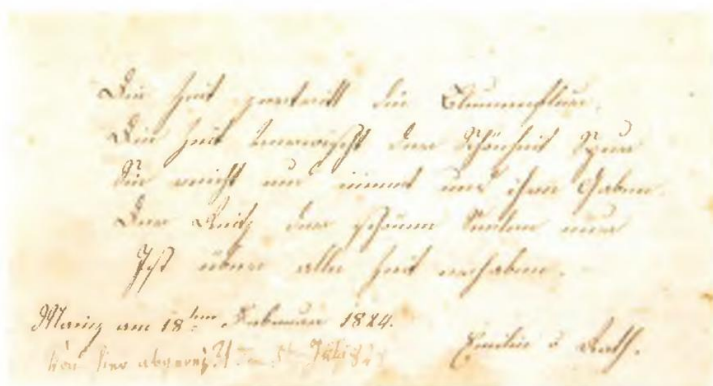 Die Zeit zertritt die Blumenflur,
Die Zeit verwischt der Schönheit Spur
Sie reicht und nimmt uns ihre Gaben.
Der Reitz der schönen Seelen nur
Ist über alle Zeit erhaben.
Mainz am 18ten Februar 1824.
Emilie v Rath.
Von hier abgereist 5 Juli